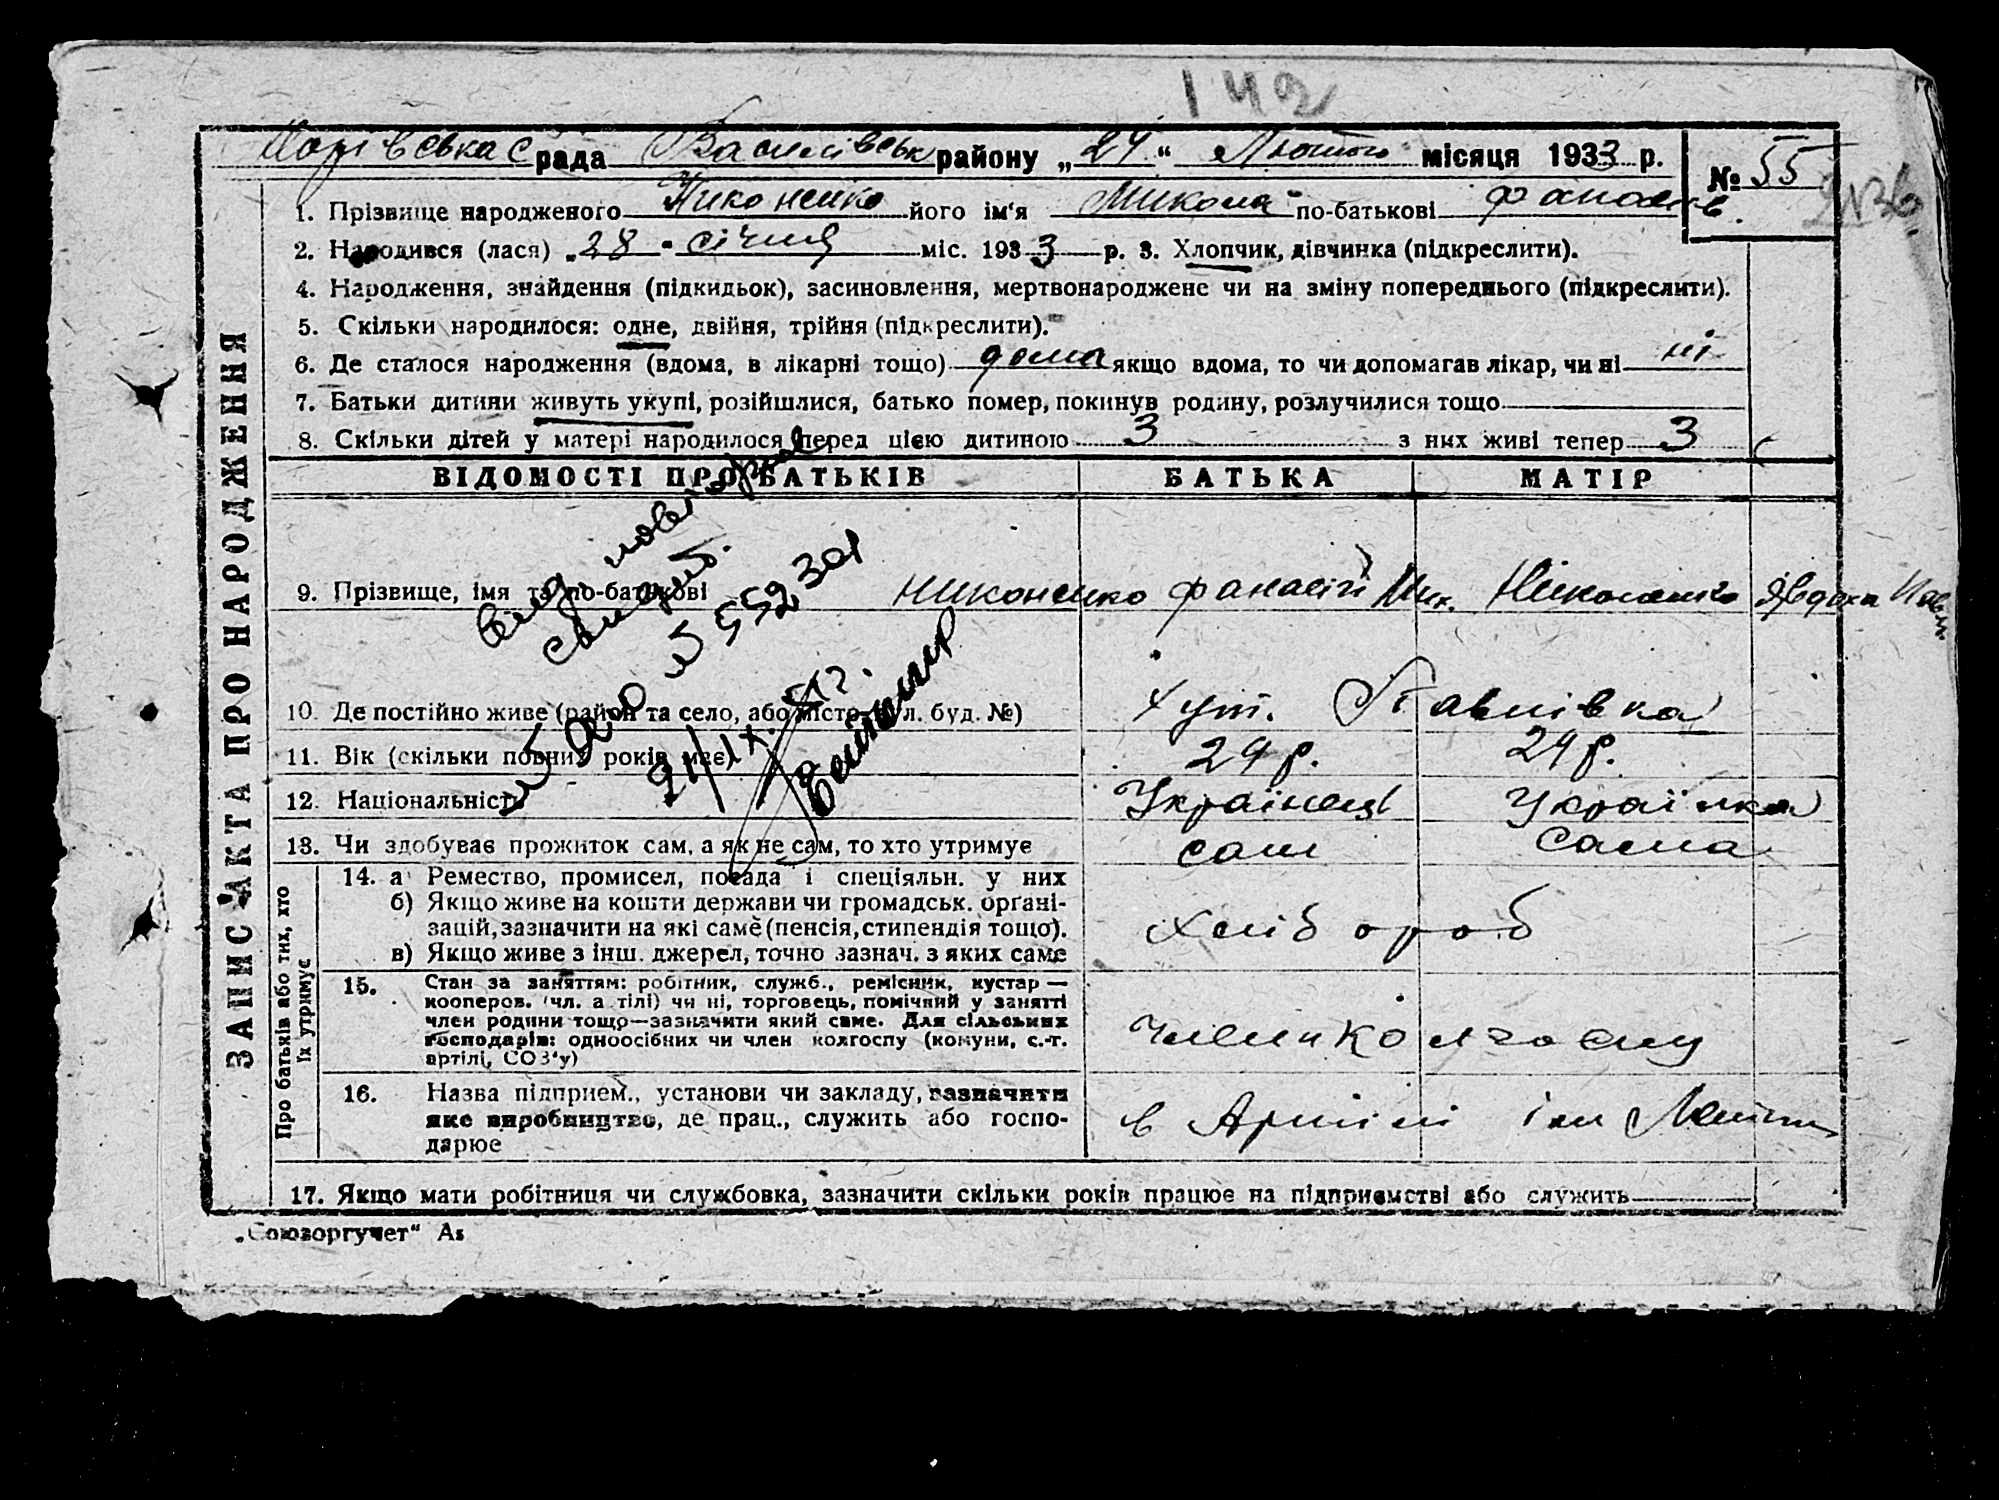 142
рада Василівськ району „24“ Лютого місяця 1933 р. № 55
1. Прізвище народженого Никоненко його ім'я Микола по-батькові Фанасів.
2. Народився (лася) „28" січня міс. 1933 р. 3. Хлопчик, дівчинка (підкреслити).
4. Народження, знайдення (підкидьок), засиновлення, мертвонароджене чи на зміну попереднього (підкреслити).
5. Скільки народилося: одне, двійня, трійня (підкреслити).
6. Де сталося народження (вдома, в лікарні тощо) дома якщо вдома, то чи допомагав лікар, чи ні ні
7. Батьки дитини живуть укупі, розійшлися, батько помер, покинув родину, розлучилися тощо
8. Скільки дітей у матері народилося перед цією дитиною 3 з них живі тепер 3
ВІДОМОСТІ ПРО БАТЬКІВ БАТЬКА МАТІР
9. Прізвище, імя та по-батькові Никоненко Фанасій Мик. Ніконенко Явдоха Пав
10. Де постійно живе (район та село, або місто, вул. буд. №) хут. Павлівка
11. Вік (скільки повних років має) 29 р. 29 р.
12. Національність Українець Українка
13. Чи здобуває прожиток сам, а як не сам, то хто утримує сам сама
14. а) Ремество, промисел, посада і спеціяльн. у них
б) Якщо живе на кошти держави чи громадськ. органі-
зацій, зазначити на які саме (пенсія, стипендія тощо).
хлібороб
в) Якщо живе з інш. джерел, точно зазнач. з яких саме
15. Стан за заняттям: робітник, служб., ремісник, кустар —
кооперов. (чл. а тілі) чи ні, торговець, помічний у занятті
член родини тощо—зазначити який саме. Для сільських
господарів: одноосібних чи член колгоспу (комуни, с.-г.
артілі, СОЗ'у)
член колгоспу
16. Назва підприєм., установи чи закладу, зазначити
яке виробництво, де прац., служить або госпо-
дарює
в Артілі ім Леніна
17. Якщо мати робітниця чи службовка, зазначити скільки років працює на підприємстві або служить
„Союзоргучет“
ЗАПИС АКТА ПРО НАРОДЖЕННЯ
Про батьків або тих, хто
їх утримує
вид. повторное
свидет.
552301
21/IX